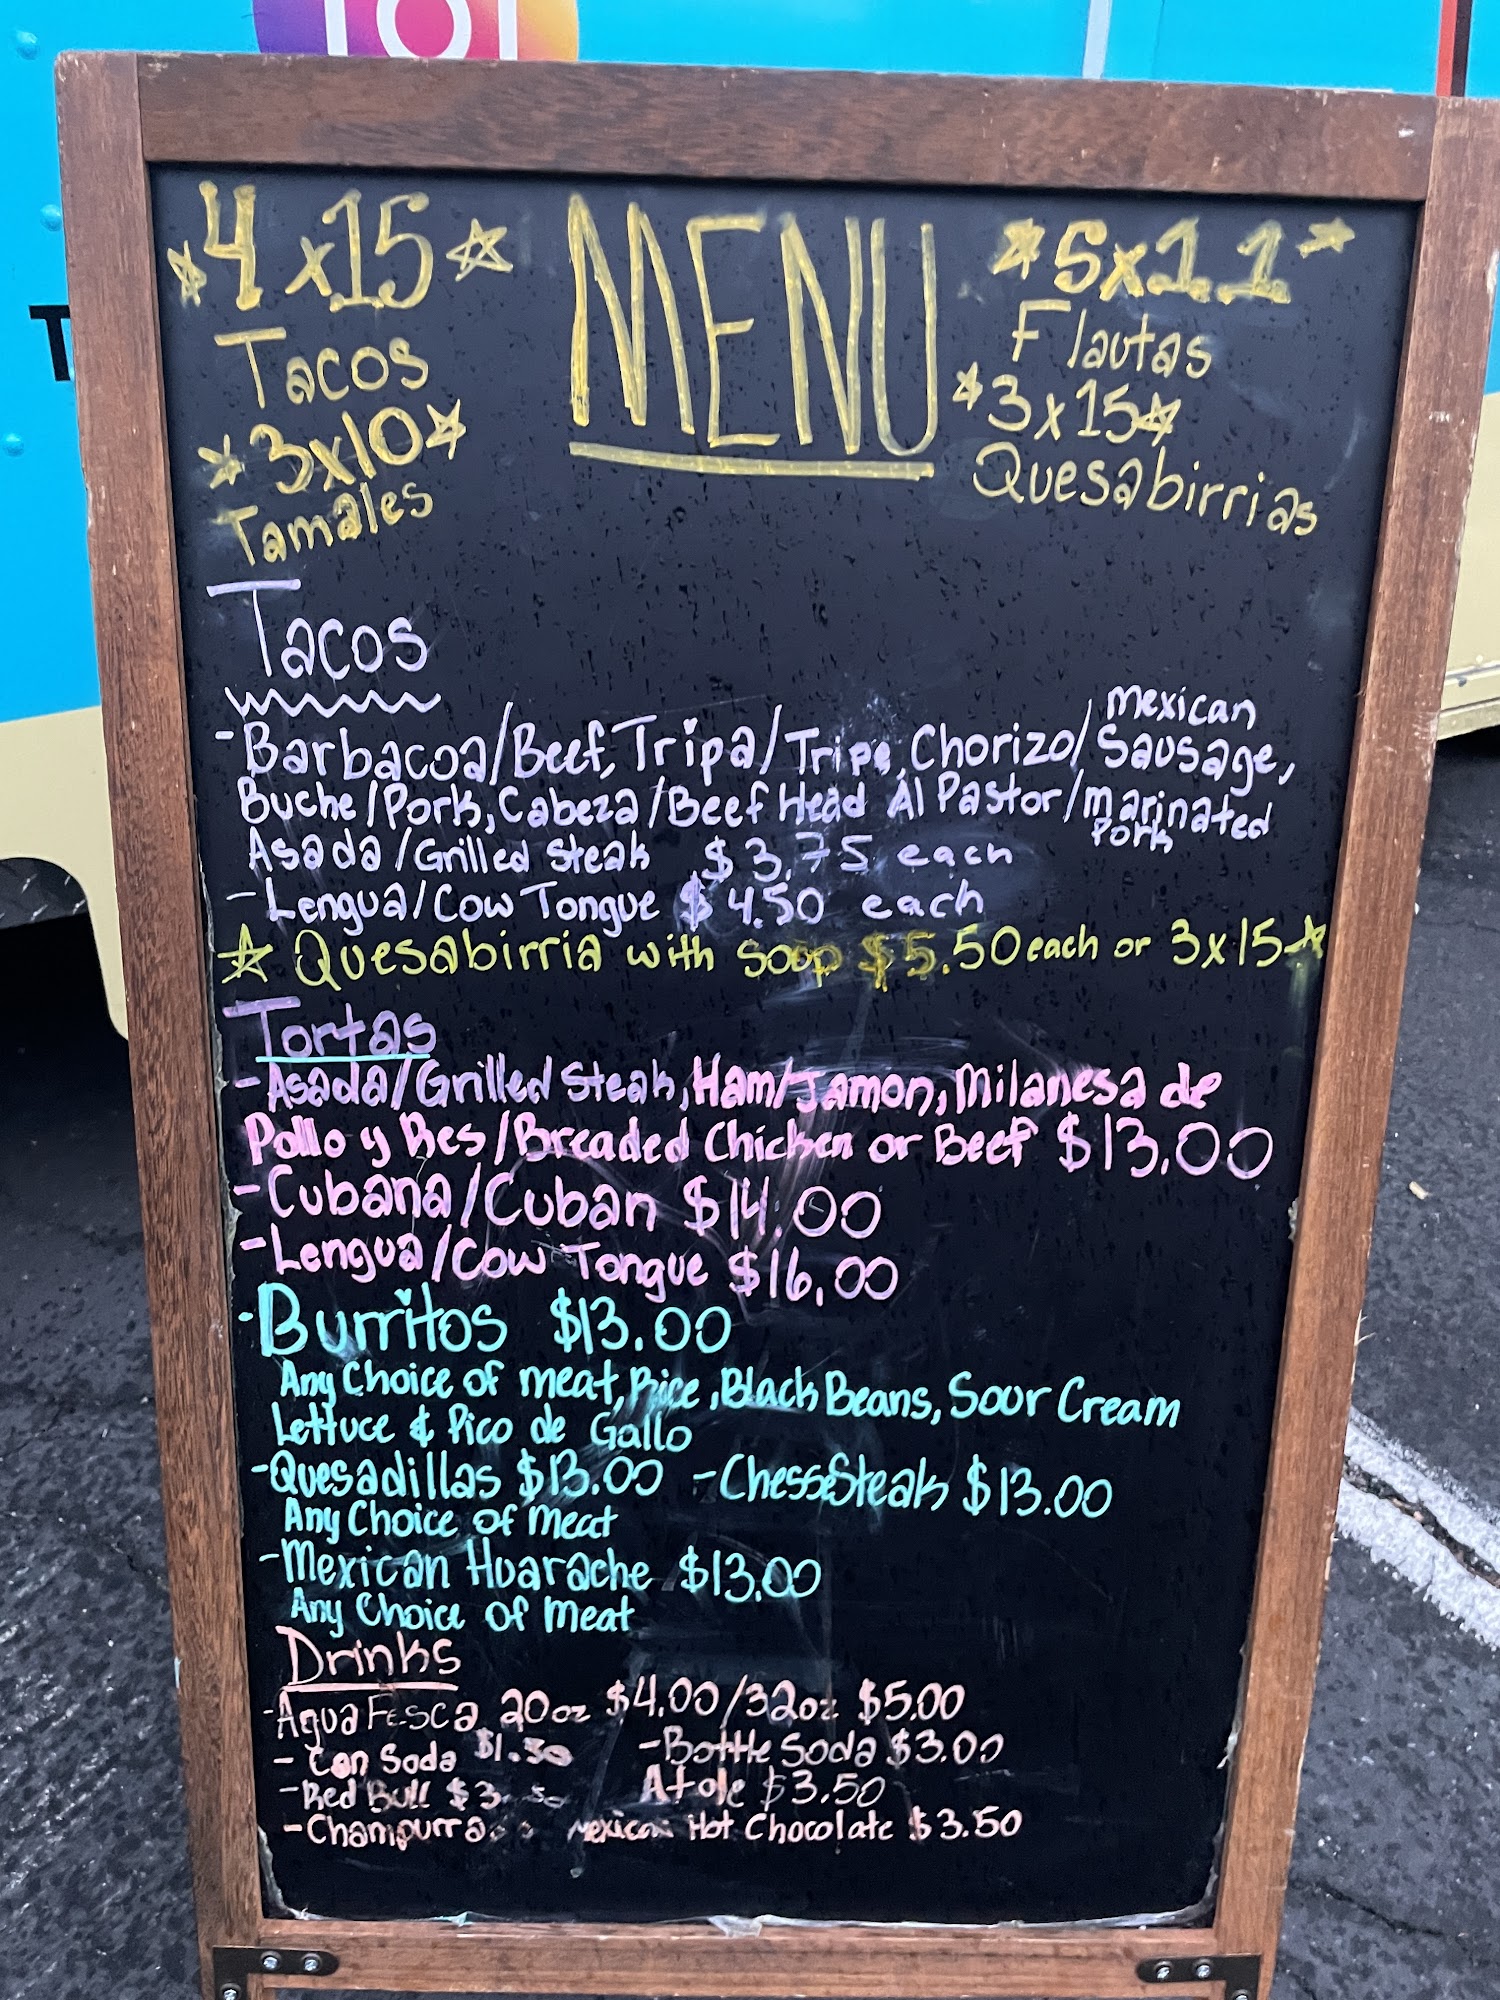 4x15
Tacos
3x10
Tamales
MENU
5x11
Flautas
3x15
Quesabirrias
Tacos
-Barbacoa/Beef, Tripa/Tripe, Chorizo/Mexican Sausage,
Buche/Pork, Cabeza/Beef Head Al Pastor/Marinated Pork
Asada/Grilled Steak $3.75 each
-Lengua/Cow Tongue $4.50 each
Quesabirria with soop $5.50 each or 3x15
Tortas
-Asada/Grilled Steak, Ham/Jamon, Milanesa de
Pollo y Res/Breaded Chicken or Beef $13.00
-Cubana/Cuban $14.00
-Lengua/Cow Tongue $16.00
-Burritos $13.00
Any Choice of meat, Rice, Black Beans, Sour Cream
Lettuce & Pico de Gallo
-Quesadillas $13.00 -ChesseSteak $13.00
Any Choice of Meat
-Mexican Huarache $13.00
Any Choice of Meat
Drinks
-Agua Fesca 20oz $4.00/32oz $5.00
-Can Soda $1.50 -Bottle Soda $3.00
-Red Bull $3.50 Atole $3.50
-Champurra Mexican Hot Chocolate $3.50